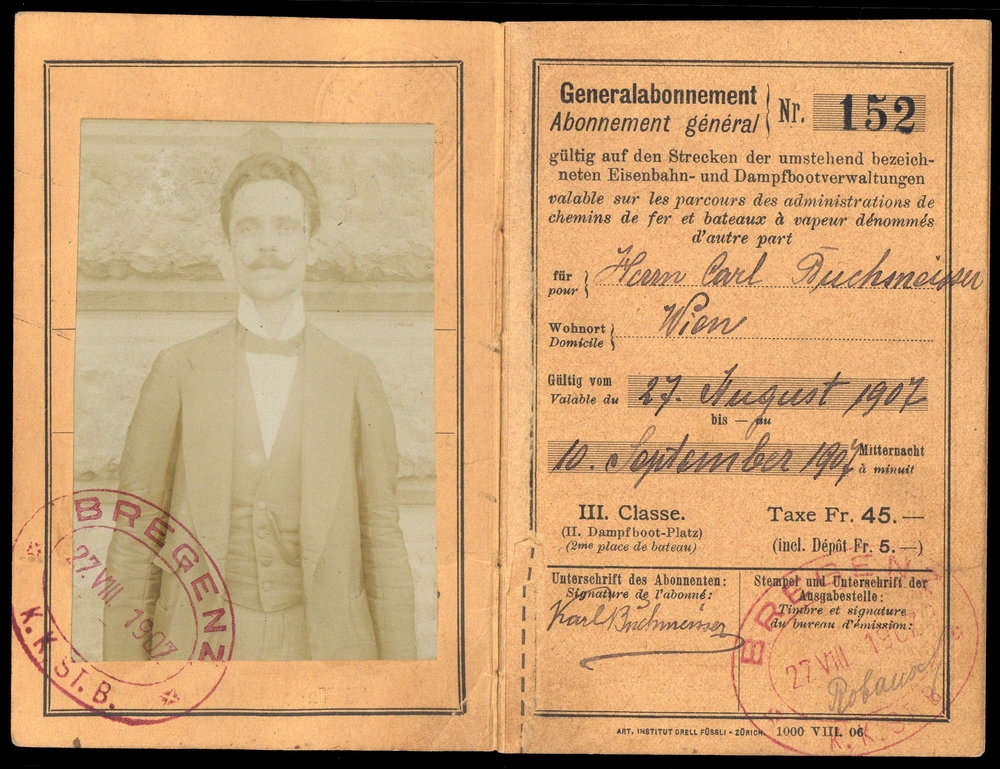 BREGENZ
27. VIII 1907
K. K. ST. B.
Generalabonnement
Abonnement général
Nr. 152
gültig auf den Strecken der umstehend bezeich-
neten Eisenbahn- und Dampfbootverwaltungen
valable sur les parcours des administrations de
chemins de fer et bateaux à vapeur dénommés
d'autre part
für
pour
Herrn Carl Buchmeisser
Wohnort
Domicile
Wien
Gültig vom
Valable du
27. August 1907
bis — au
10. September 1907
Mitternacht
à minuit
III. Classe.
(II. Dampfboot-Platz)
(2me place de bateau)
Taxe Fr. 45.—
(incl. Dépôt Fr. 5.—)
Unterschrift des Abonnenten:
Signature de l'abonné:
Karl Buchmeisser
Stempel und Unterschrift der
Ausgabestelle:
Timbre et signature
du bureau d'émission:
BREGENZ
27 VIII 1907
K. K. ST. B.
ART. INSTITUT ORELL FÜSSLI - ZÜRICH. 1000 VIII. 06.